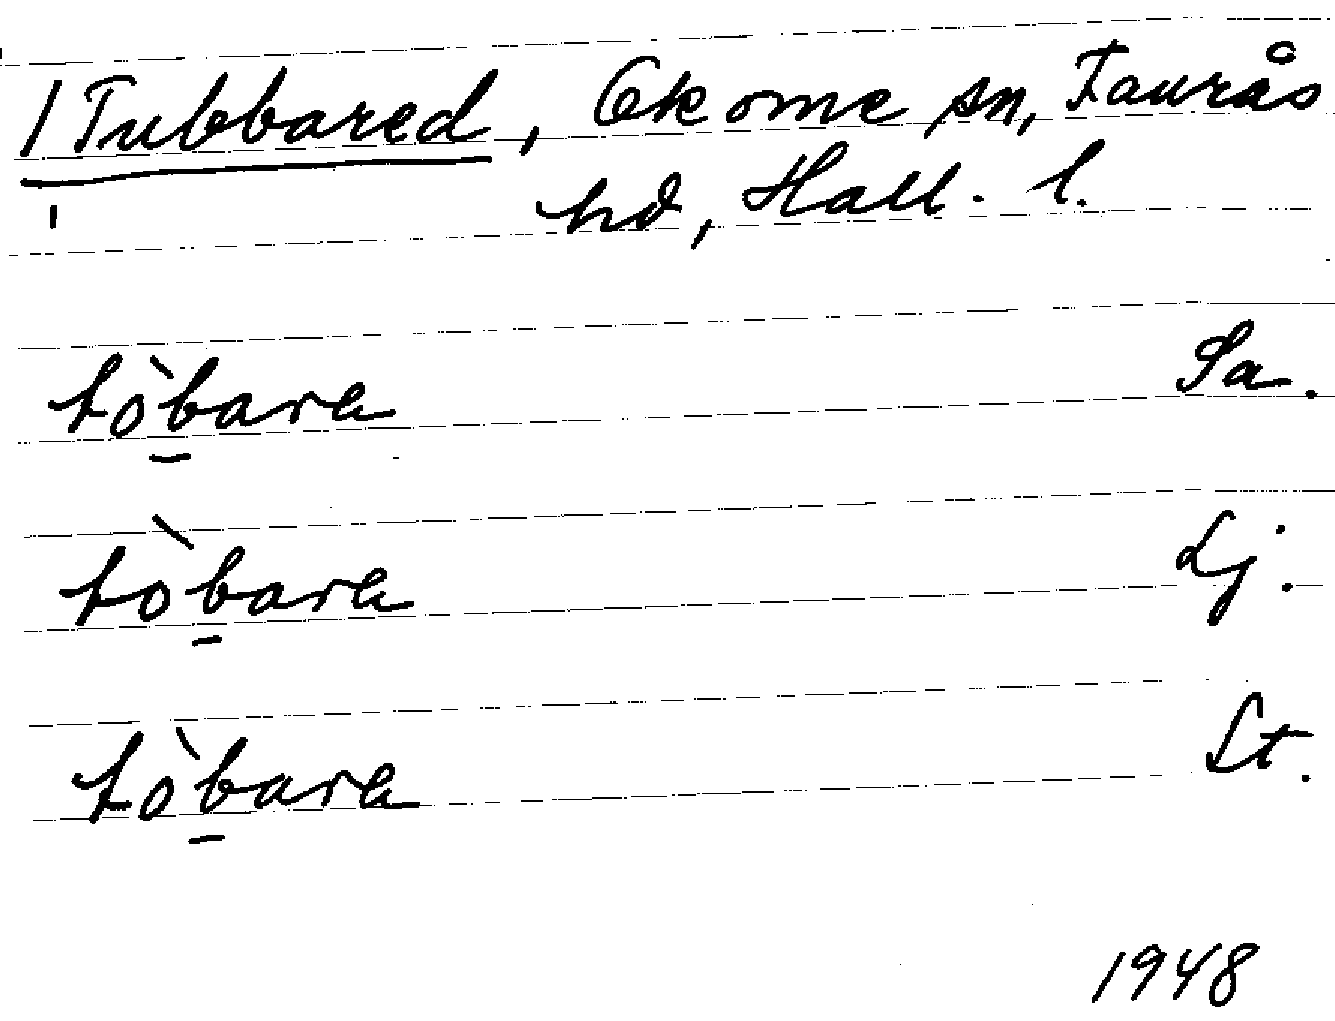 1 Tubbared, Okome sn, Faurås
hd, Hall. l.
tòb̲ara Sa.
tòb̲ara Lj.
tòb̲ara St.
1948